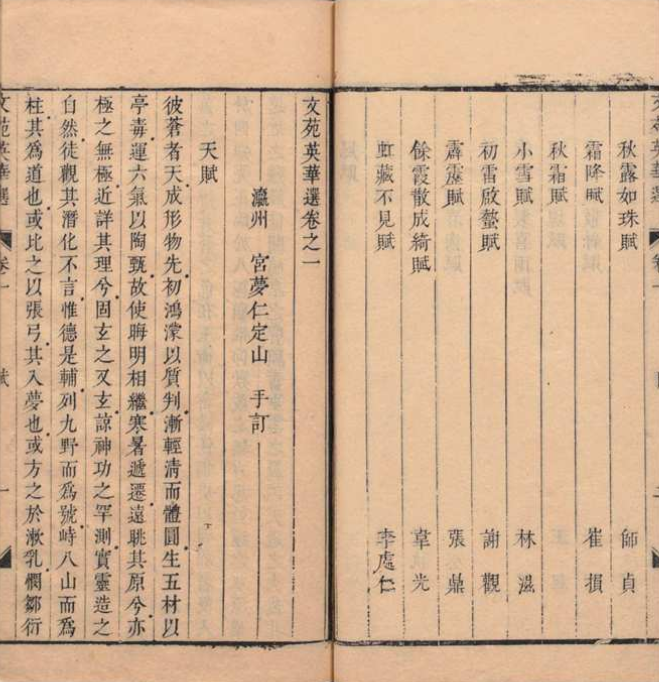 秋露如珠賦 師貞
霜降賦 崔損
秋霜賦
小雪賦 林滋
初雷啟蟄賦 謝觀
霹靂賦 張鼎
餘霞散成綺賦 韋光
虹藏不見賦 李處仁
文苑英華選卷之一
瀛州 宮夢仁定山 手訂
天賦
彼蒼者天成形物先初鴻濛以質判漸輕清而體圓生五材以
亭毒運六氣以陶甄故使晦明相繼寒暑遞遷遠眺其原兮亦
極之無極近詳其理兮固玄之又玄諒神功之罕測實靈造之
自然徒觀其潛化不言惟德是輔列九野而為號峙八山而為
柱其為道也或比之以張弓其入夢也或方之於漱乳憫鄒衍
文苑英華選 卷一 賦 一